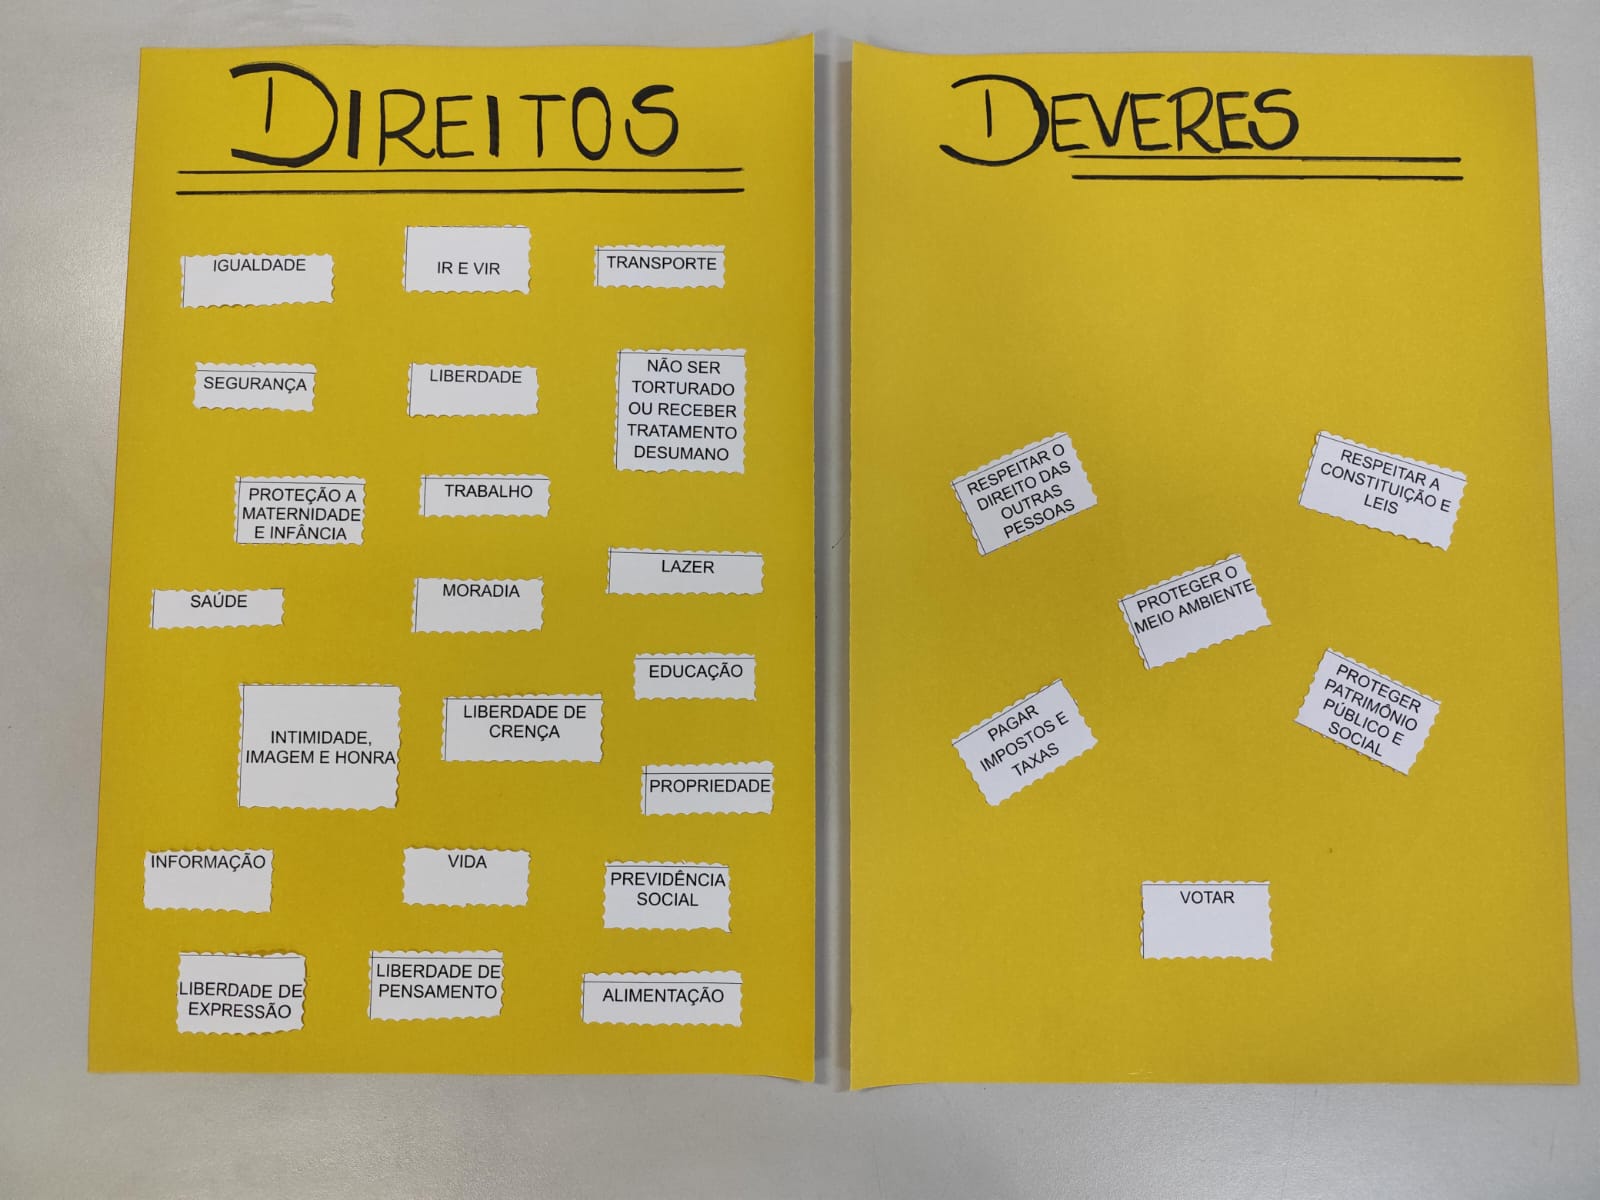 DIREITOS
IGUALDADE
IR E VIR
TRANSPORTE
SEGURANÇA
LIBERDADE
NÃO SER
TORTURADO
OU RECEBER
TRATAMENTO
DESUMANO
PROTEÇÃO A
MATERNIDADE
E INFÂNCIA
TRABALHO
LAZER
SAÚDE
MORADIA
EDUCAÇÃO
INTIMIDADE,
IMAGEM E HONRA
LIBERDADE DE
CRENÇA
PROPRIEDADE
INFORMAÇÃO
VIDA
PREVIDÊNCIA
SOCIAL
LIBERDADE DE
EXPRESSÃO
LIBERDADE DE
PENSAMENTO
ALIMENTAÇÃO
DEVERES
RESPEITAR O
DIREITO DAS
OUTRAS
PESSOAS
RESPEITAR A
CONSTITUIÇÃO E
LEIS
PROTEGER O
MEIO AMBIENTE
PAGAR
IMPOSTOS E
TAXAS
PROTEGER
PATRIMÔNIO
PÚBLICO E
SOCIAL
VOTAR